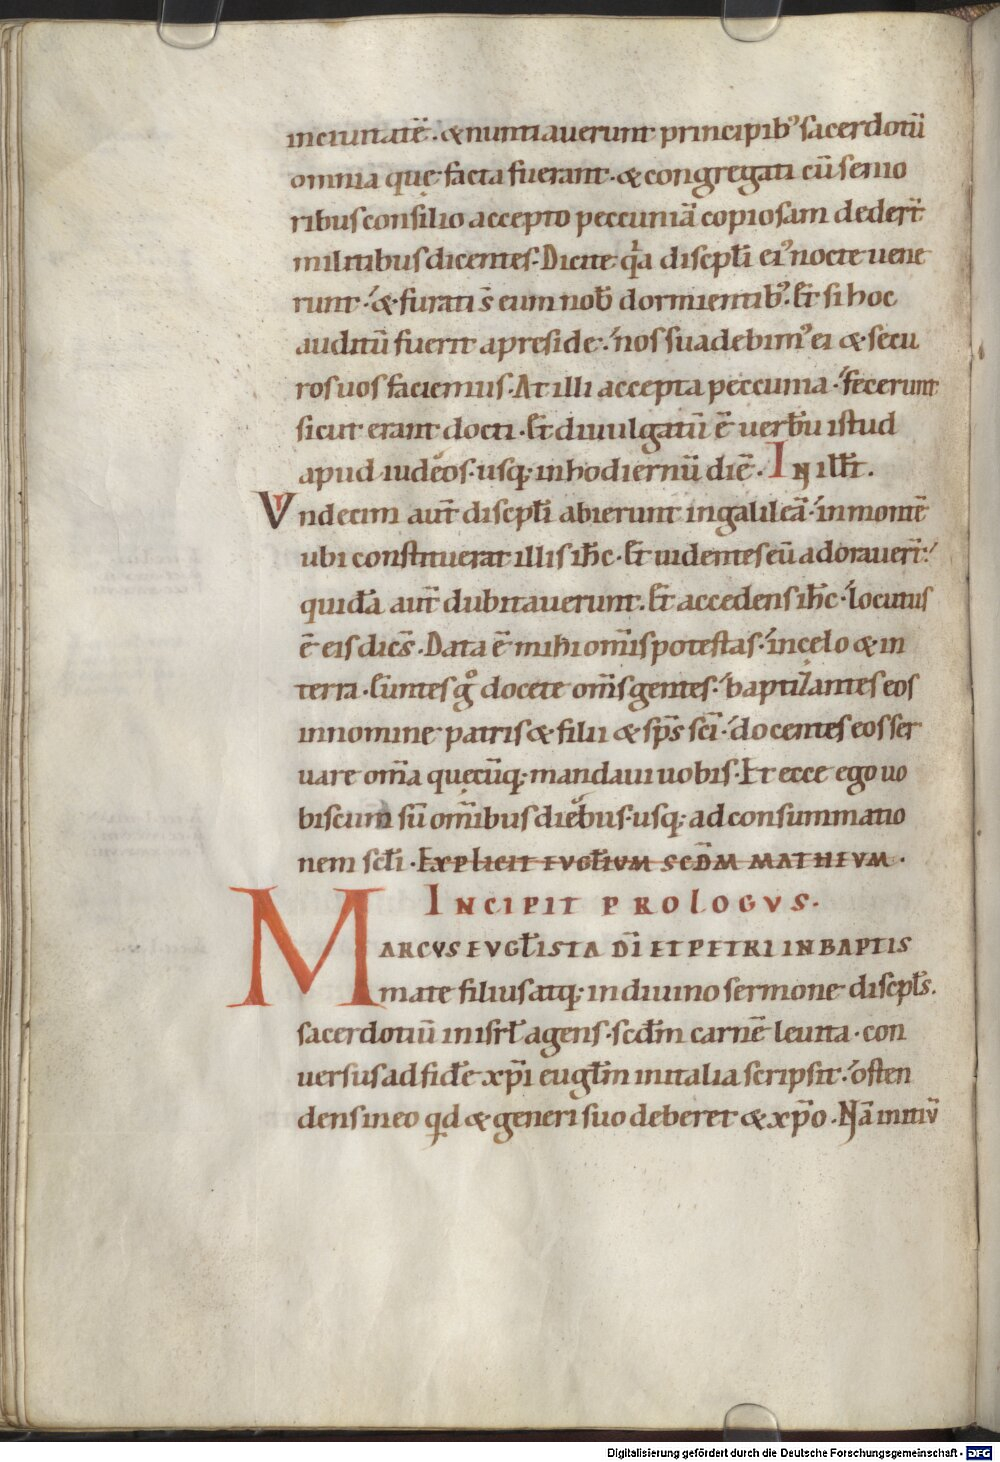 inciuitatē. & nuntiauerunt principib᾽ sacerdotū
omnia quę facta fuerant. & congregati cū senio
ribus consilio accepto peccuniā copiosam dedert̄
militibus dicentes. Dicite qͥa discipl̄i ei᾽ nocte uene
runt. & furati s̄ eum nob̄ dormientib᾽. Et si hoc
auditū fuerit apreside. nos suadebim᾽ ei & secu
ros uos faciemus. At illi accepta peccunia. fecerunt
sicut erant docti. Et diuulgatū ē uerbū istud
apud iudeos. usq; inhodiernū diē. In ill̄t.
Vndecim aut̄ discipl̄i abierunt ingalileā. inmontē
ubi constituerat illis ih̄c. Et uidentes eū adorauert̄.
quidā aut̄ dubitauerunt. Et accedens ih̄c. locutus
ē eis dicēs. Data ē mihi omīs potestas. incelo & in
terra. Euntes gͦ docete om̄s gentes. baptizantes eos
innomine patris & filii & sp̄s sc̄i. docentes eos ser
uare om̄a quęcūq; mandaui uobis. Et ecce ego uo
biscum sū om̄ibus diebus. usq; ad consummatio
nem sc̄li. Explicit eugl̄ium sc̄dm matheum.
Incipit prologus.
Marcus eugl̄ista dī et petri in baptis
mate filius atq; indiuino sermone discipl̄s.
sacerdotiū in isrl̄ agens. sc̄dm carnē leuita. con
uersus ad fidē xp̄i eugl̄m initalia scripsit. osten
dens ineo qd̄ & generi suo deberet & xp̄o. Nā initiū
Digitalisierung gefördert durch die Deutsche Forschungsgemeinschaft - DFG